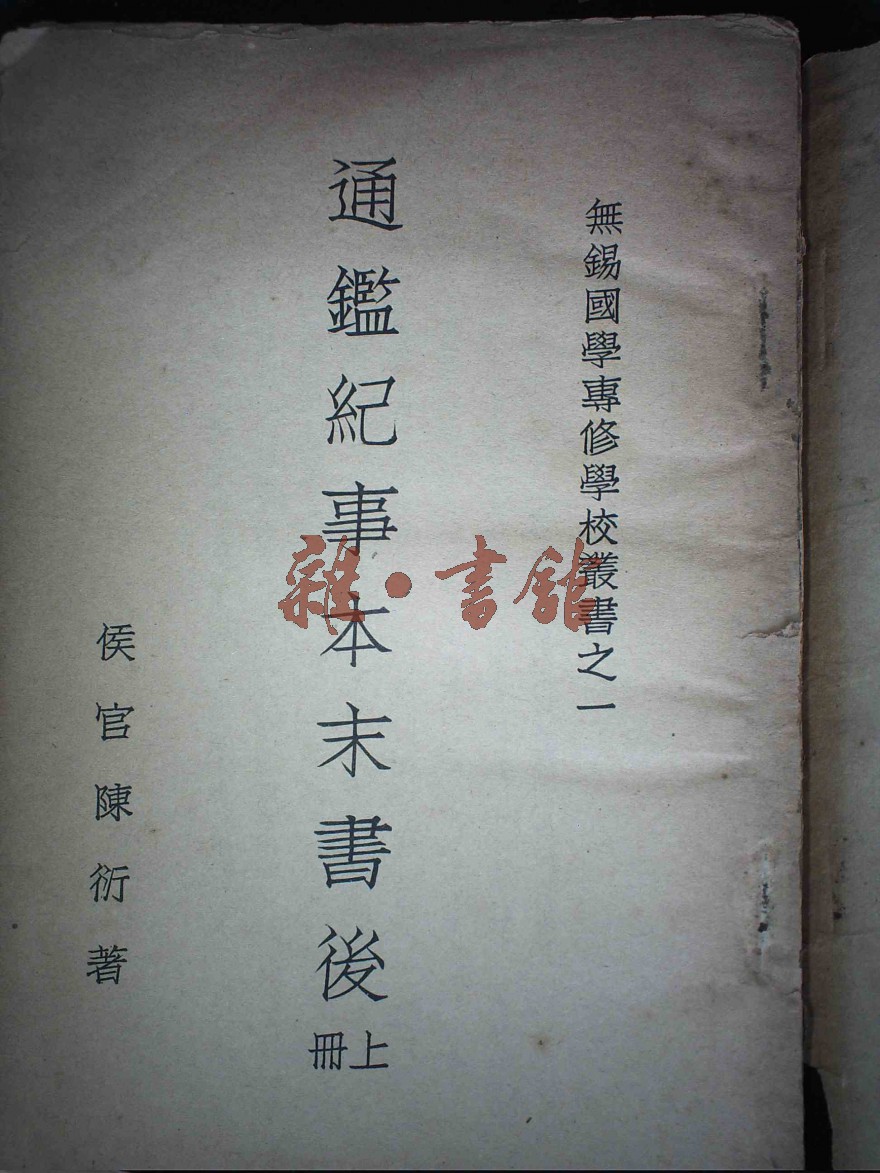 無錫國學專修學校叢書之一
通鑑紀事本末書後
上冊
侯官陳衍著
雜·書館